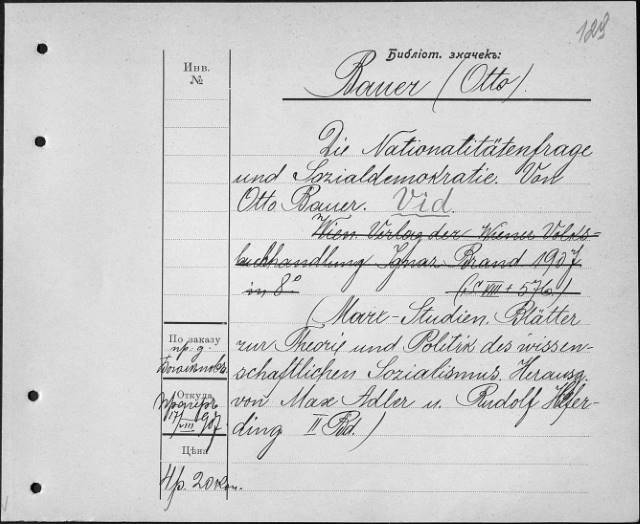 128
Библіот. значекъ:
Bauer (Otto).
Инв.
№
Die Nationalitätenfrage
und Sozialdemokratie. Von
Otto Bauer. Vid.
Wien. Verlag der Wiener Volks-
buchhandlung Ignaz Brand 1907
in 8° (S. VIII + 576)
(Marx-Studien. Blätter
zur Theorie und Politik des wissen-
schaftlichen Sozialismus. Herausg.
von Max Adler u. Rudolf Hilfer-
ding II Bd.)
По заказу
пр. д.
Откуда
17/VIII 907
Цѣна
4р. 20 коп.